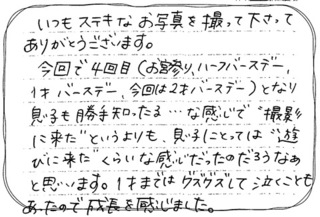 いつもステキなお写真を撮って下さって
ありがとうございます。
今回で4回目(お宮参り、ハーフバースデー、
1才バースデー、今回は2才バースデー)となり
息子も勝手知ったる…な感じで"撮影
に来た"というよりも、息子にとっては"遊
びに来た"くらいな感じだったのだろうなぁ
と思います。1才まではグズグズして泣くことも
あったので成長を感じました。